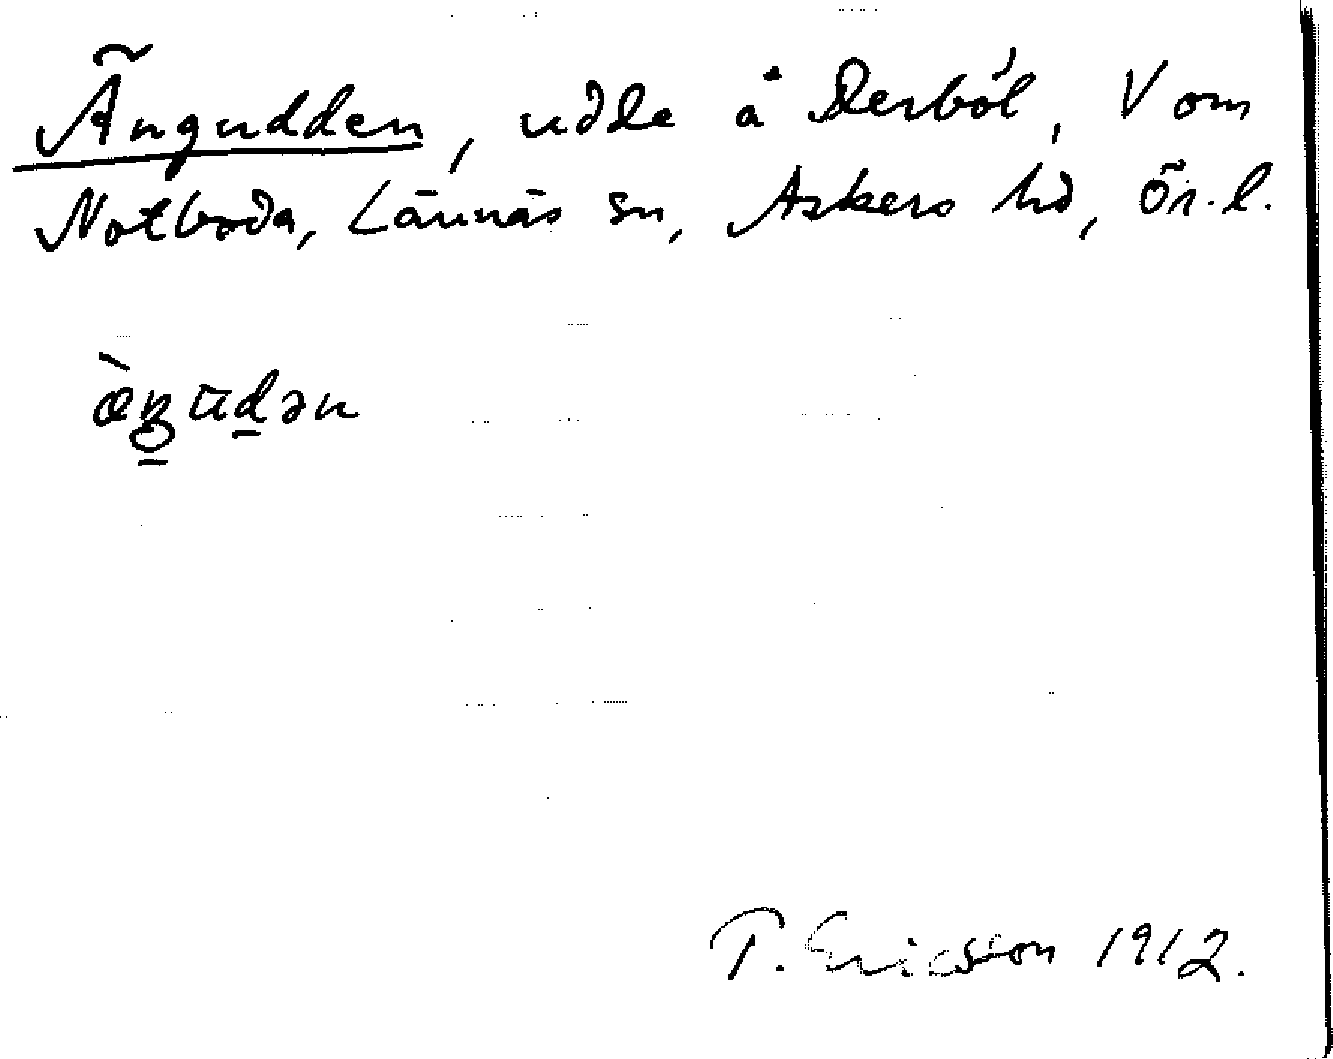 Ängudden, udde å Derból, V om
Notboda, Lännäs sn, Askers hd, Ör. l.
T. Ericsson 1912.